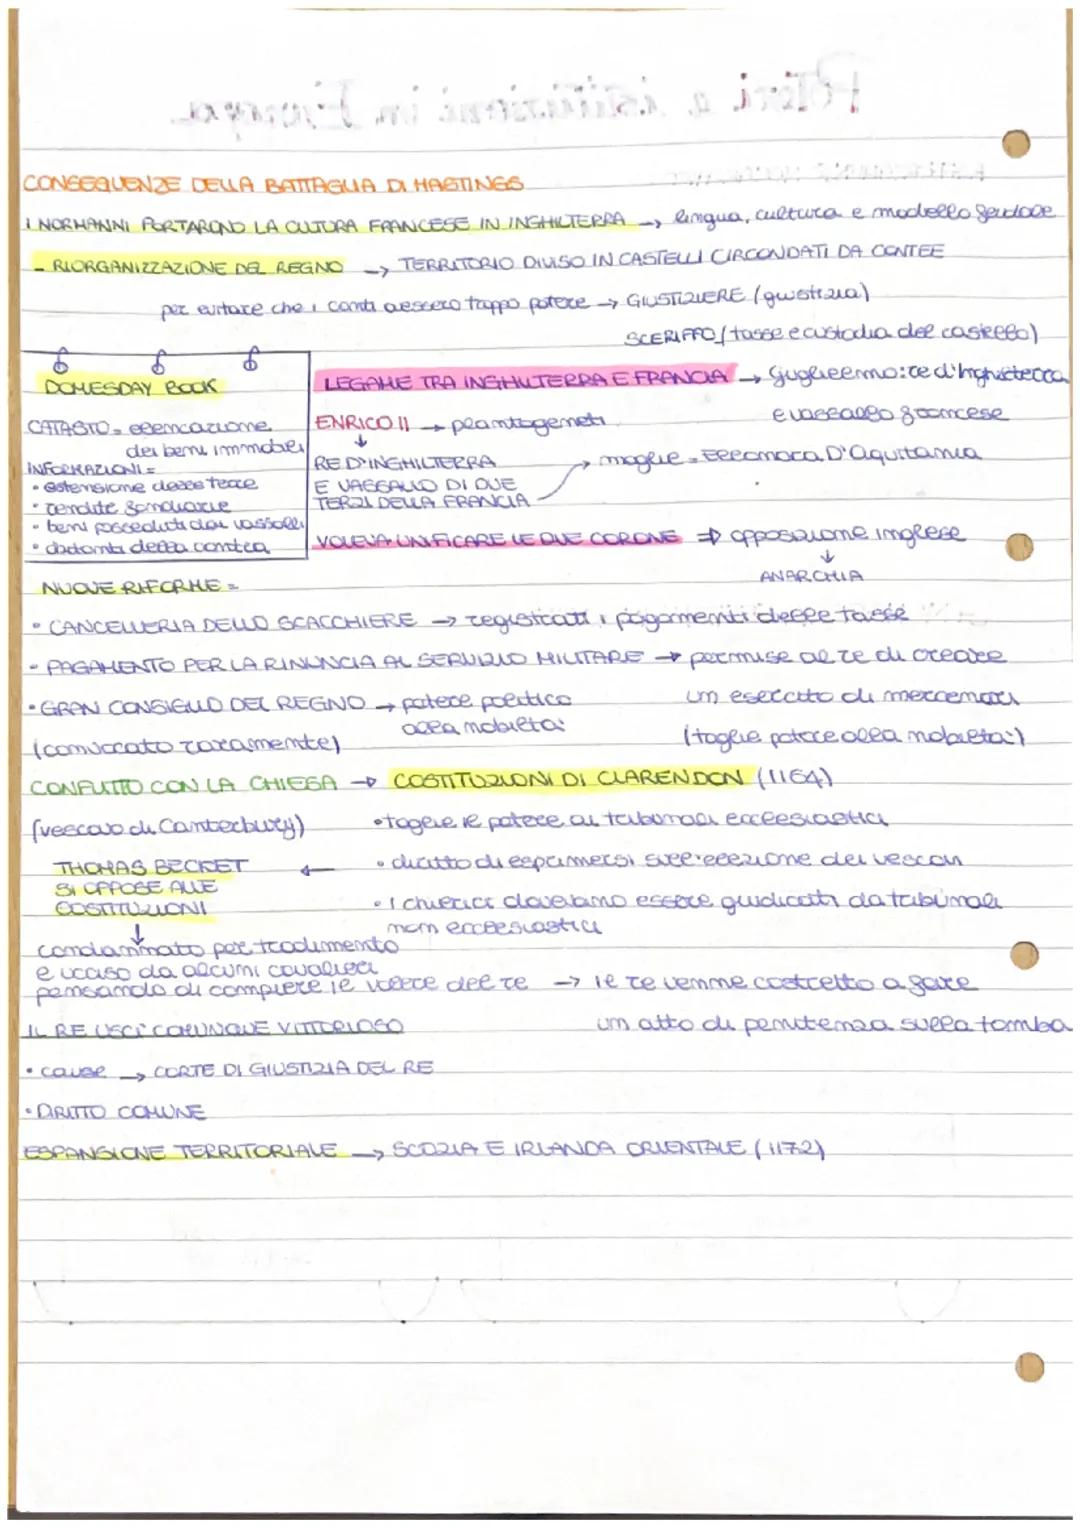 CONSEGUENZE DELLA BATTAGLIA DI HASTINGS
I NORMANNI PORTARONO LA CULTURA FRANCESE IN INGHILTERRA → lingua, cultura e modello feudale
- RIORGANIZZAZIONE DEL REGNO → TERRITORIO DIVISO IN CASTELLI CIRCONDATI DA CONTEE
per evitare che i conti avessero troppo potere → GIUSTIZIERE (giustizia)
SCERIFFO (tasse e custodia del castello)
DOMESDAY BOOK
CATASTO = elencazione
dei beni immobili
INFORMAZIONI =
• estensione delle terre
• rendite fondiarie
• beni posseduti dai vassalli
• abitanti della contea
LEGAME TRA INGHILTERRA E FRANCIA → Guglielmo: re d'Inghilterra
e vassallo francese
ENRICO II → plantageneti
↓
RE D'INGHILTERRA
E VASSALLO DI DUE
TERZI DELLA FRANCIA
→ moglie = Eleonora D'Aquitania
VOLEVA UNIFICARE LE DUE CORONE ⇒ opposizione inglese
↓
ANARCHIA
NUOVE RIFORME =
• CANCELLERIA DELLO SCACCHIERE → registrati i pagamenti delle tasse
• PAGAMENTO PER LA RINUNCIA AL SERVIZIO MILITARE → permise al re di creare
un esercito di mercenari
(toglie potere alla nobiltà)
• GRAN CONSIGLIO DEL REGNO → potere politico
alla nobiltà
(convocato raramente)
CONFLITTO CON LA CHIESA → COSTITUZIONI DI CLARENDON (1164)
(vescovo di Canterbury)
• togliere potere ai tribunali ecclesiastici
• diritto di esprimersi sull'elezione dei vescovi
• I chierici dovevano essere giudicati da tribunali
non ecclesiastici
THOMAS BECKET
SI OPPOSE ALLE
COSTITUZIONI
↓
condannato per tradimento
e ucciso da alcuni cavalieri
pensando di compiere il volere del re → il re venne costretto a fare
un atto di penitenza sulla tomba
IL RE USCÌ COMUNQUE VITTORIOSO
• cause → CORTE DI GIUSTIZIA DEL RE
• DIRITTO COMUNE
ESPANSIONE TERRITORIALE → SCOZIA E IRLANDA ORIENTALE (1172)